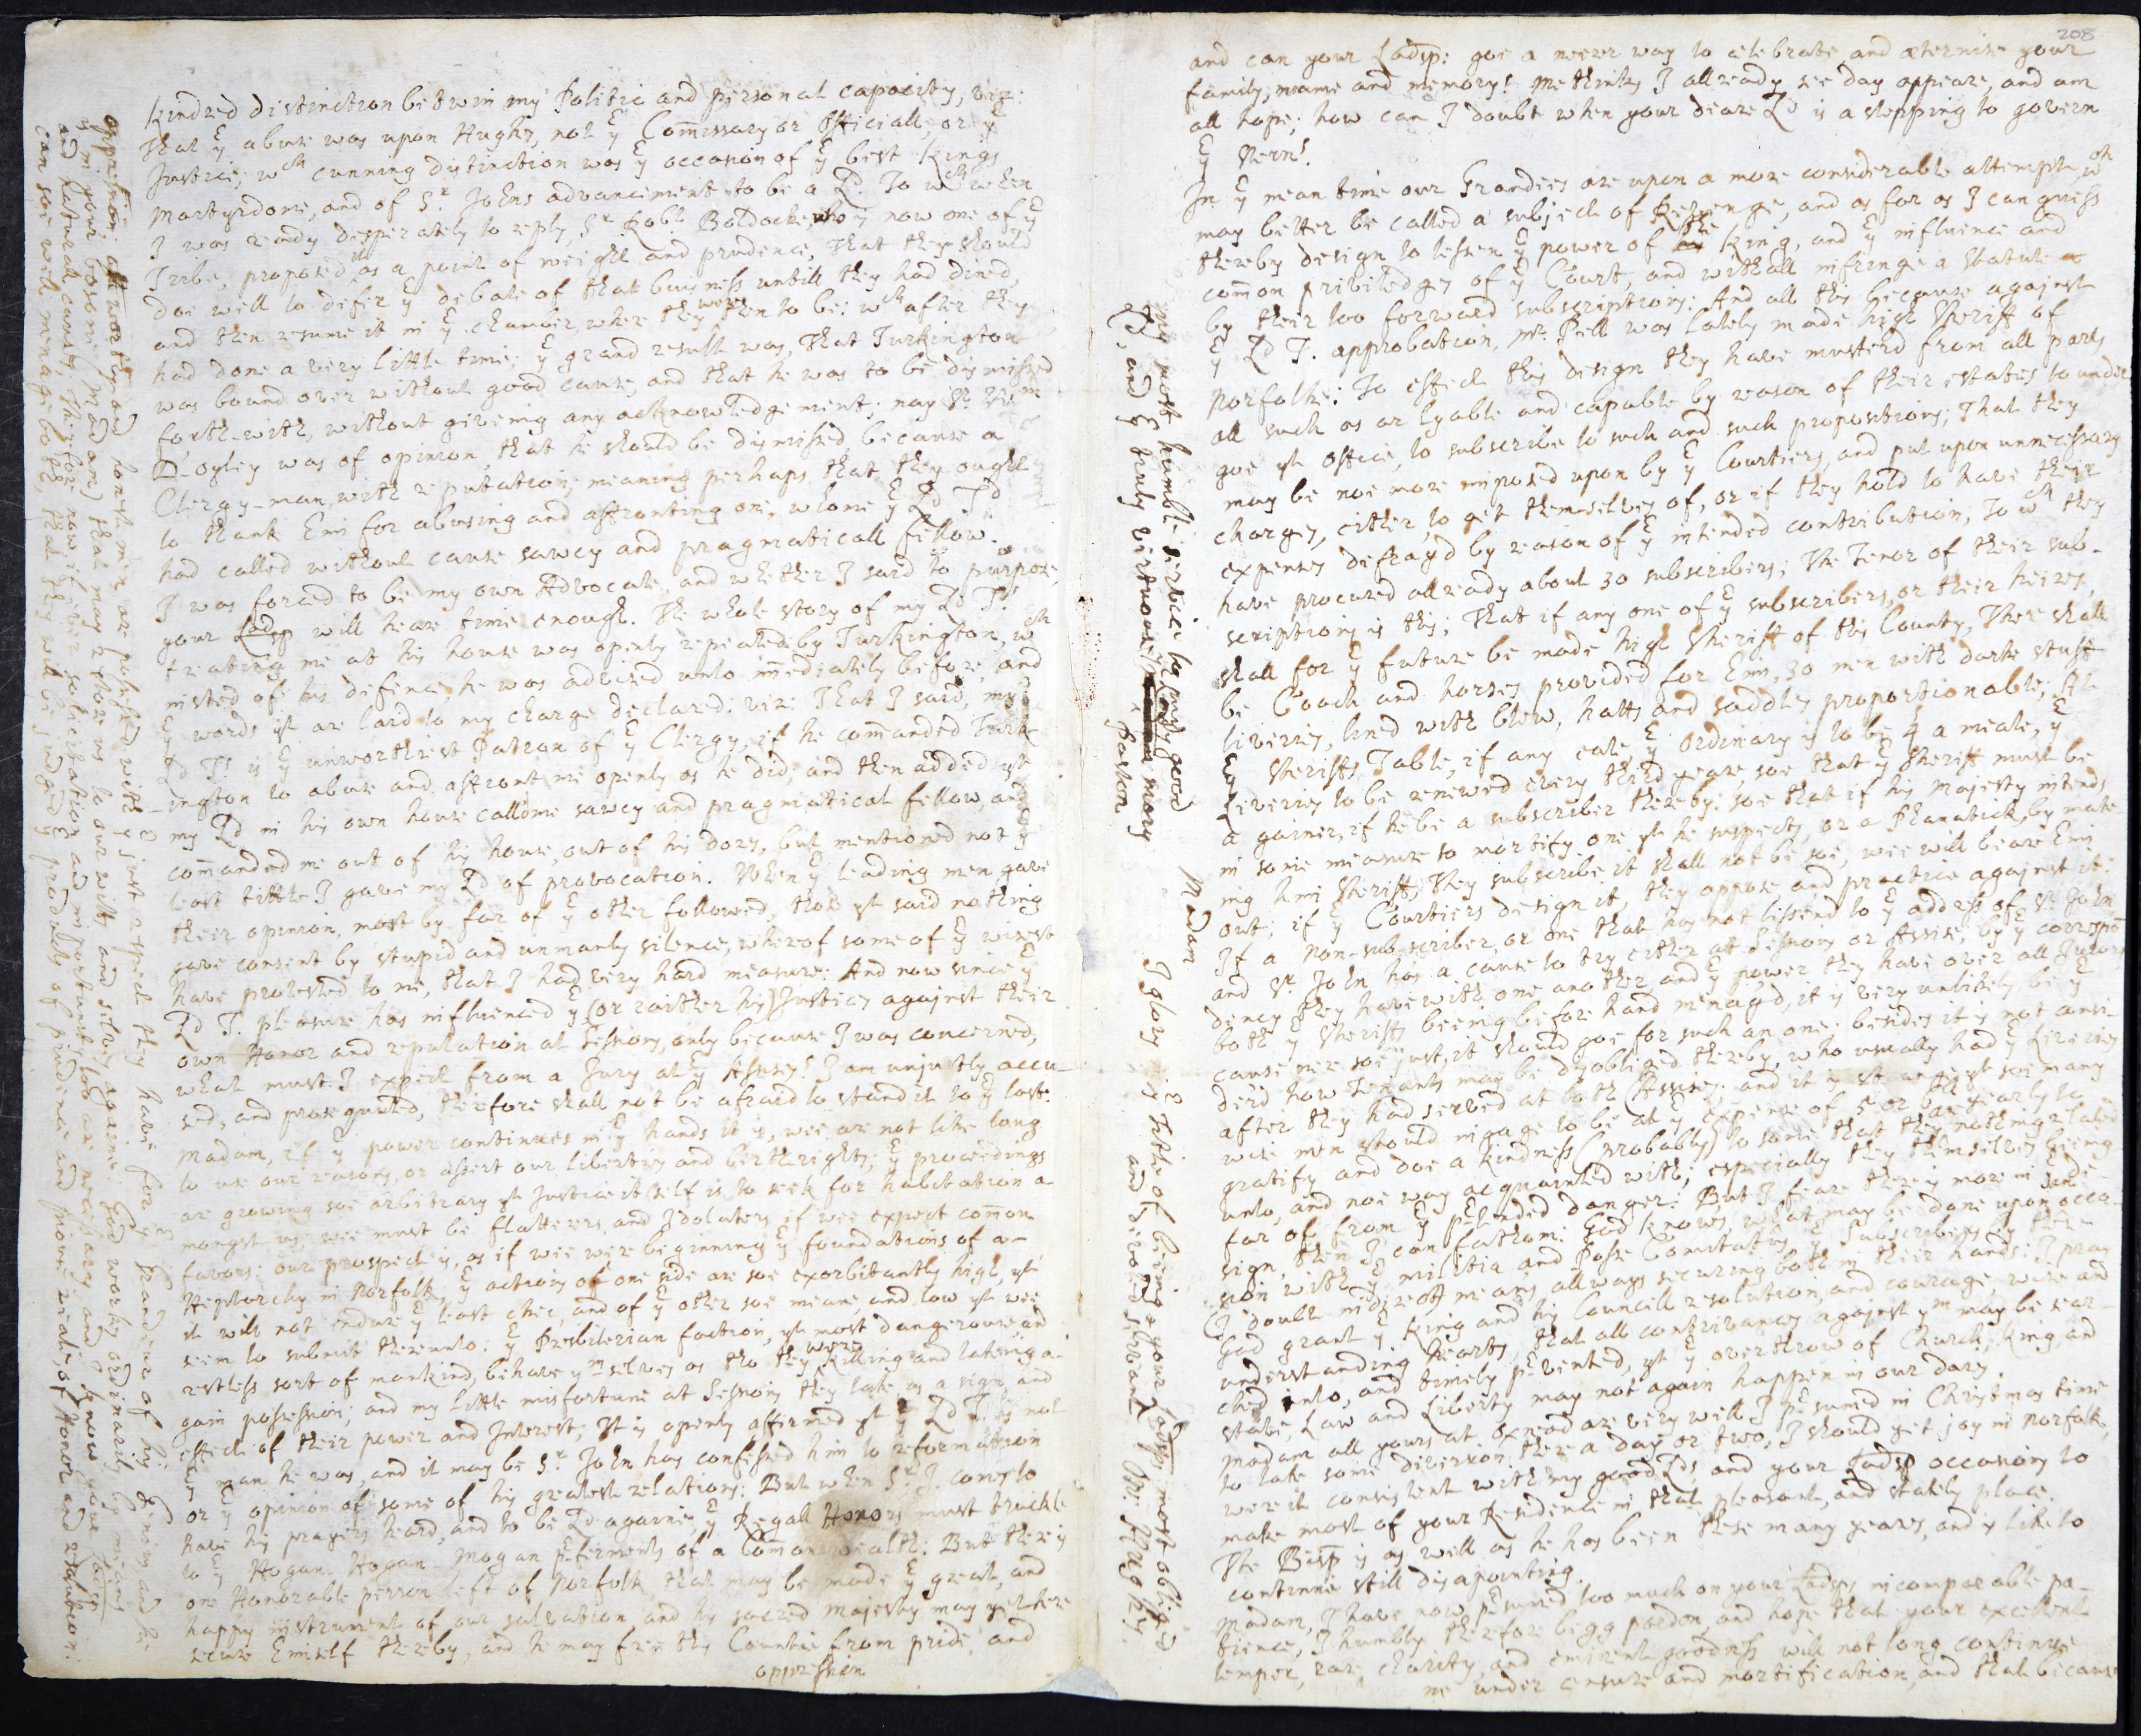 kindred distinction betwin my Politic and personal capacity, viz:
That ye abuse was upon Hughs, not ye Com̄issary or Officiall, or ye
Justice; wch cunning distinction was ye occasion of ye best Kings
Martyrdome, and of Sr. Johns advancement to be a Ld. To wch when
I was ready desperately to reply, Sr Robt. Baldocke, who is now one of ye
Tribe, proposed as a point of weight and prudence, That they should
doe well to defer ye debate of that buisness untill they had dined,
and then resume it in ye chamber, where they were then to be: wch after they
had done a very little time; ye grand result was, That Turkington
was bound over without good cause, and that he was to be dismissed
forth-with, without giveing any acknowledgement; nay Sr. Wm
D-Oyley was of opinion, that he should be dismissed because a
Clergy-man, with reputation; meaning perhaps, that they ought
to thank Em̄ for abusing and affronting one, whome ye Ld Td
had called without cause sawcy and pragmaticall fellow.
I was forced to be my own Advocate, and whether I said to purpose,
your Ladsp will heare time enough. The whole story of my Ld Ts
treating me at his house was openly repeated by Turkington, wch
insted of his defence, he was advised unto im̄ediately before, and
ye words yt are laid to my charge declared: viz: That I said, my
Ld T: is ye unworthiest Patron of ye Clergy, if he com̄anded Turk-
-ington to abuse and affront me openly as he did, and then added yt
my Ld in his own house call'd me sawcy and pragmatical fellow, and
com̄anded me out of his house, out of his dores, but mentioned not ye
least tittle I gave my Ld of provocation. When ye leading men gave
their opinion, most by far of ye other followed, thos yt said nothing
gave consent by stupid and unmanly silence, whereof some of ye wisest
have protested to me, that I had very hard measure: And now since ye
Ld T. pleasure has influenced ye (or raither his) Justices against their
own Honor and reputation at Sessions, only because I was concerned,
what must I expect from a Jury at ye Assises? I am unjustly accu-
sed, and prosequuted, therefore shall not be afraid to stand it to ye last.
Madam, if ye power continues in ye hands it is, wee are not like long
to use our reasons, or assert our liberties and birthrights; ye proceedings
are growing soe arbitrary yt Justice it self is to seek for habitation a-
mongst us; wee must be flatterers and Idolaters, if wee expect com̄on
favors: our prospect is, as if wee were beginning ye foundations of a-
Heptarchy in Norfolk; ye actions of one side are soe exorbitantly high, yt
it will not endure ye least chec, and of ye other soe meane, and low yt wee
seem to submit thereunto: ye Presbiterian faction, yt most dangerous and
restless sort of mankind, behave ym selves as tho they were killing and takeing a-
gain possession; and my little misfortune at Sessions they take as a sign and
effect of their power and Interest; It is openly affirmed yt ye Ld T. is not
ye man he was, and it may be Sr. John has confessed him to reformation
or ye opinion of some of his greatest relations: But when Sr. J. comes to
have his prayers heard, and to be Ld againe, ye Regall Honors must truckle
to ye Hogan-Hogan-Mogan pferments of a Com̄on wealth: But there is
one Honorable person left of Norfolk, that may be made ye great, and
happy instrument of our salvation and his sacred Majesty may yet here
secure Emself thereby, and he may free this Countrie from pride, and
oppression
oppression: all worthy and honest men are posessed with ye just respect they have for ye Grandeur of his Genius, and he
is in your bosome (Madam) that may restore us to our witts and selves againe: God works ordinarily by means
and naturall causes, therefore now if ever solicitation and importunity too are necessary, and I know your Ladsp
can soe well menage both, that they will be judged ye products of prudence and pious zeale, of Honor and retaliation:
208
and can your Ladsp: goe a neerer way to celebrate and æternise your
family, name and memory? Me thinks I allready see day appeare, and am
all hope; how can I doubt when your deare Ld is a stepping to govern
ye Stern?
In ye mean time our Grandees are upon a more considerable attempt, wch
may better be called a subject of Revenge, and as far as I can guess
thereby design to lessen ye power of the King, and ye influence and
com̄on priviledges of ye Court, and withall infringe a Statute
by their too forward subscriptions: And all this because against
ye Ld T. approbation, Mr. Pell was lately made high Sheriff of
Norfolke: To effect this design they have musterd from all parts
all such as ar lyable and capable by reason of their estates to under-
goe yt office, to subscribe to such and such propositions; That they
may be noe more imposed upon by ye Courtiers, and put upon unnecessary
charges, either to get themselves of, or if they hold to have their
expenses defray'd by reason of ye intended contribution, To wch they
have procured allready about 30 subscribers; The Tenor of their sub-
scriptions is this; That if any one of ye subscribers, or their heires,
shall for ye future be made high Sheriff of this County, Ther shall
be Coach and horses provided for Em̄, 30 men with darke stuff
liveries, lined with blew, hatts and saddles proportionable; At
ye Sheriffs Table, if any eate ye Ordinary is to be 4s a meale, ye
Liveries to be renewed every third yeare, soe that ye Sheriff must be
a gainer, if he be a subscriber thereby: soe that if his Majesty intends
in some measure to mortify one yt he suspects, or a Phanatick, by make
ing him Sheriff; They subscribe it shall not be soe, wee will beare Em̄
out; if ye Courtiers design it, they oppose and practice against it:
If a Non-subscriber, or one that has not lissend to ye address of Sr. John
and Sr. John has a cause to try either att Sessions or Assise, by ye correspon̄
dency they have with one another, and ye power they have over all Jurors
both ye Sheriffs beeing before hand menag'd, it is very unlikely be ye
cause neer soe just, it should goe for such an one: besides it is not consi-
der'd how Tenants may be disoblidged thereby, who usually had ye Liveries
after they had served at both Assises; and it is strange yt soe many
wise men should ingage to be at ye expense of 5 or 6ll yearly to
gratify and doe a kindness (probably) to some that they nothing related
unto, and noe way acquainted with; especially they themselves beeing
far of from ye ptended danger: But I feare there is more in ye de-
sign, then I can fathom: God knows, what may be done upon occa-
sion with ye militia and Posse Comitatus, ye Subscribers by there
(I doubt indirect) means, allways secureing both in their hands: I pray
God grant ye King and his Councill resolution, and courage, wise and
understanding hearts, that all contrivances against ym may be sear-
ched into, and timely pvented, yt ye overthrow of Church, King, and
state, Law and Liberty may not again happen in our daies.
Madam all yours at Oxnead are very well, I psumed in Christmas time
to take some diversion there a day or two, I should get joy in Norfolk,
were it consistent with my good Lds and your Ladsp occasions to
make most of your Residence in that pleasant, and stately place.
The Bisp is as well as he has been these many yeares, and is like to
continue still disapointing.
Madam, I have now psumed too much on your Ladsps incomparable pa-
tience, I humbly therefore begg pardon, and hope that your excellent
temper, rare charity, and eminent goodness will not long continue
me under censure and mortification, and that because
I glory in ye title of being your Ladsps most obliged
and devoted servant Ow: Hughes.
Madam
my most humble service to my good
Ld, and ye truly vertuous Lady Mary
Paston